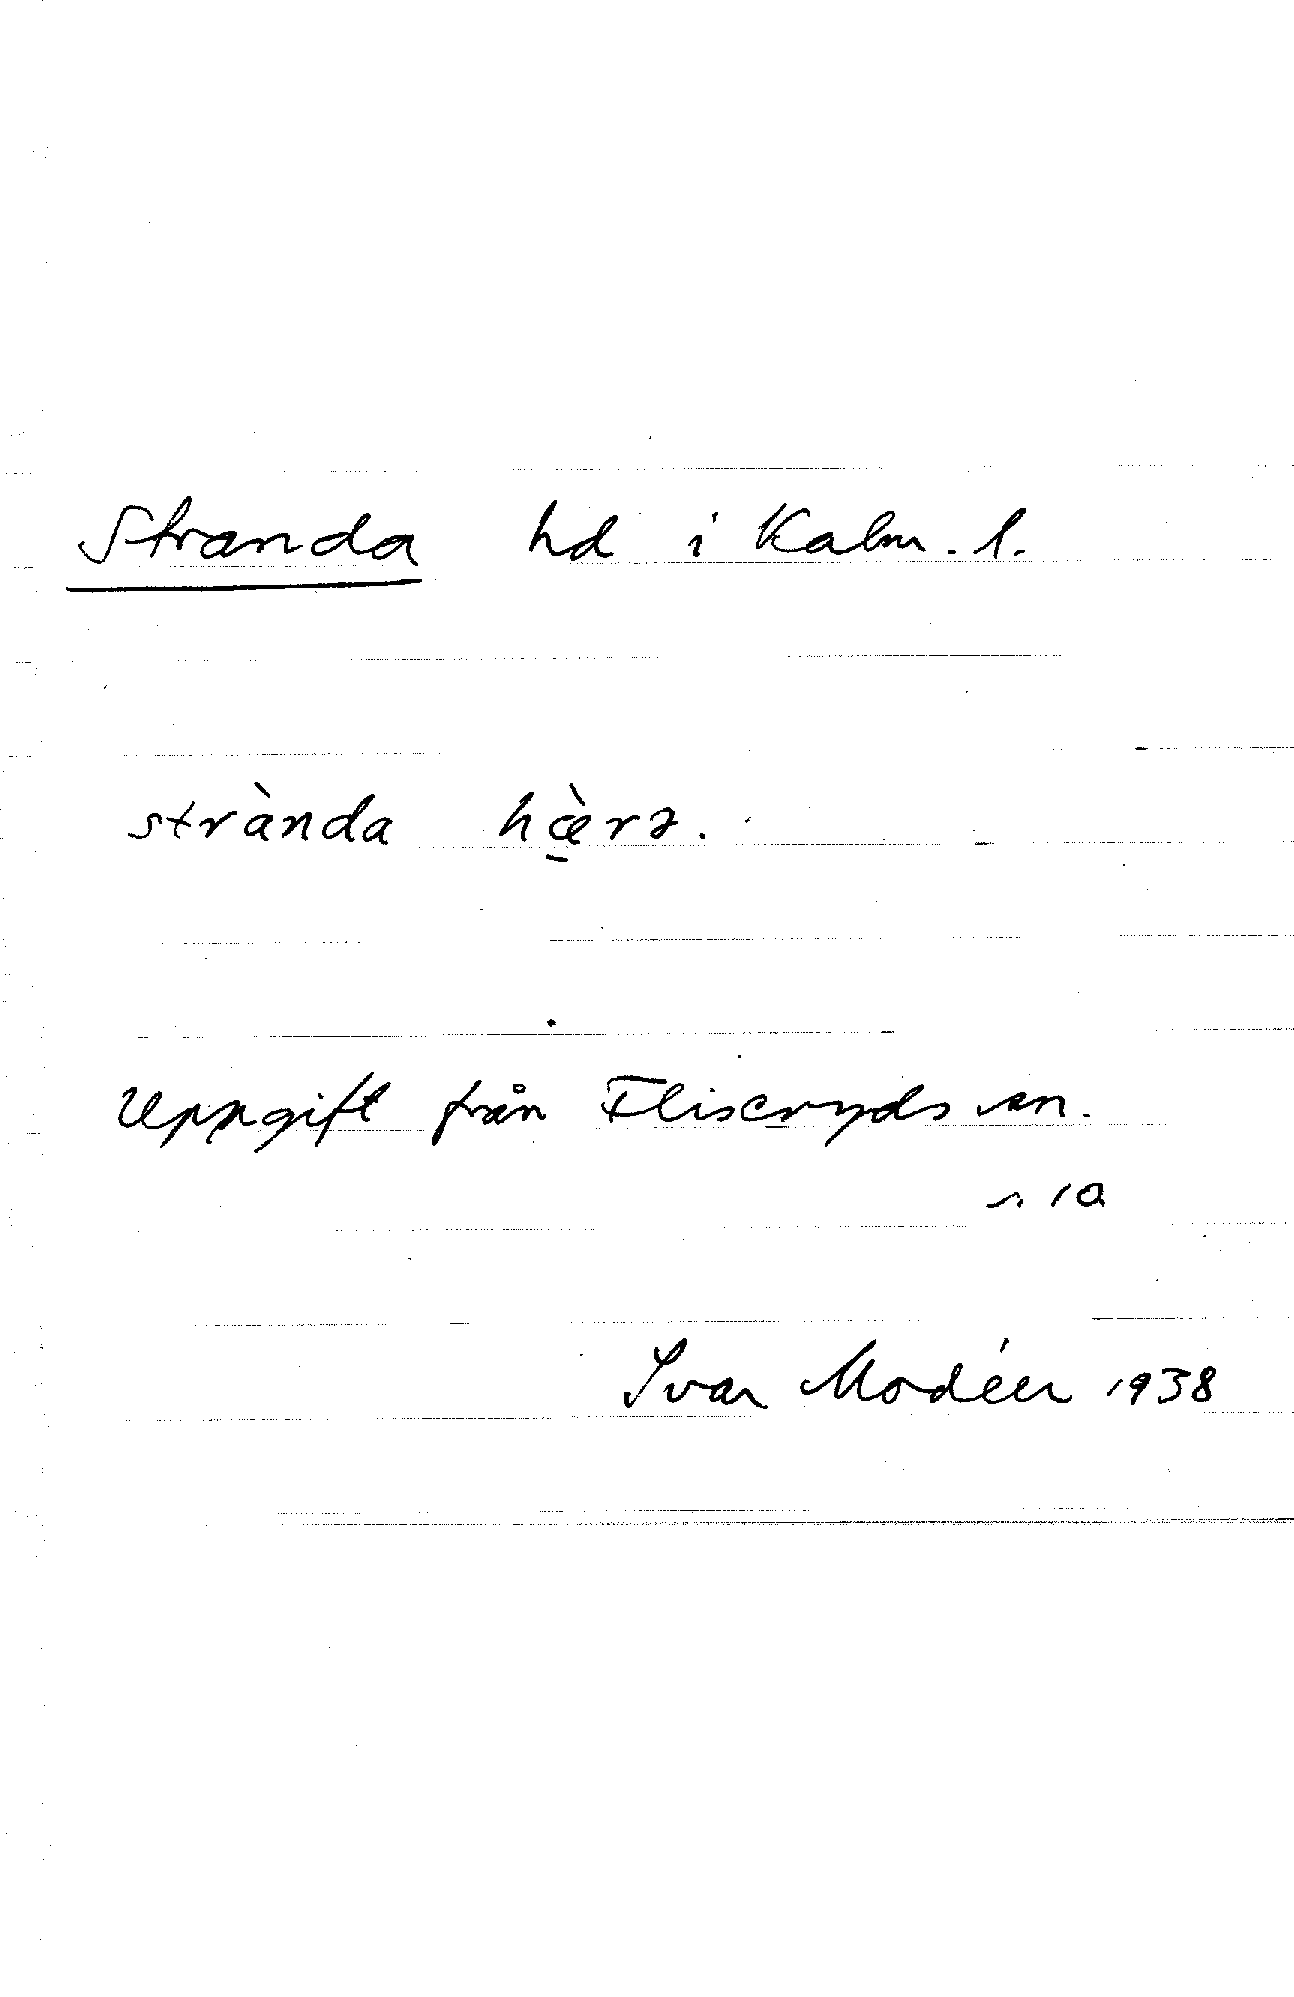 Stranda hd i Kalm. l.
strànda hæ̠̀rə.
Uppgift från Fliseryds sn.
s. 1a
Ivar Modéer 1938